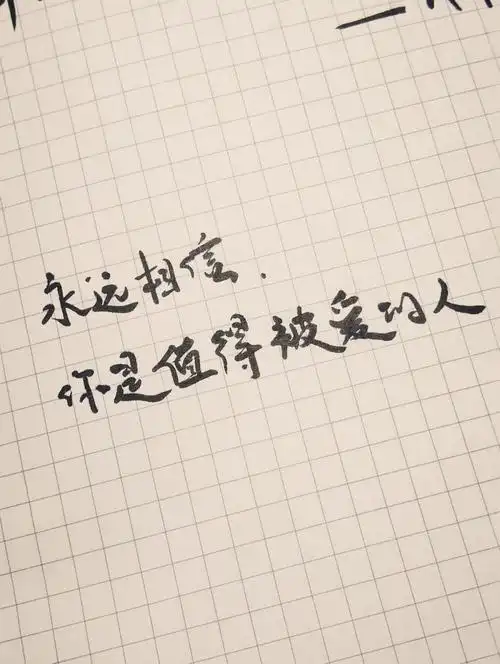 永远相信.
你是值得被爱的人